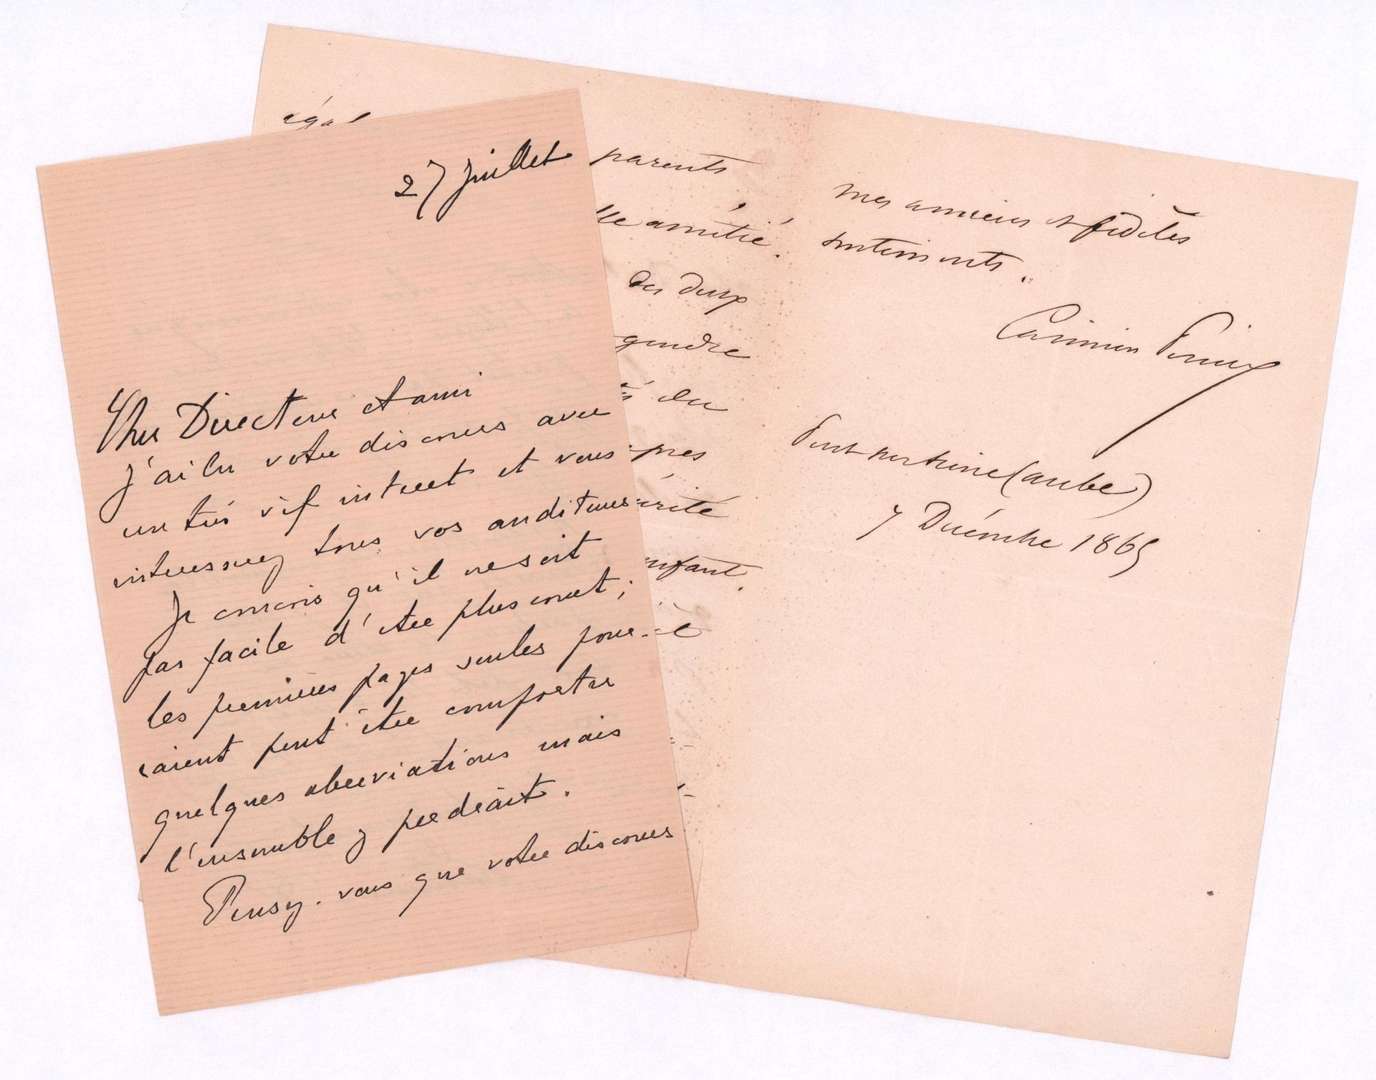 27 juillet
Cher Directeur et ami
j'ai lu votre discours avec
un très vif intérêt et vous
intéresserez tous vos auditeurs
Je conçois qu'il ne soit
pas facile d'être plus court;
les premières pages seules pour-
raient peut être comporter
quelques abréviations mais
l'ensemble y perdrait.
Pensez-vous que votre discours
égal
parents
lle amitié.
du
gendre
du
près
érité
enfant.
mes anciens et fidèles
sentiments.
Casimir Perier
Pont sur Seine (aube)
7 Décembre 1865